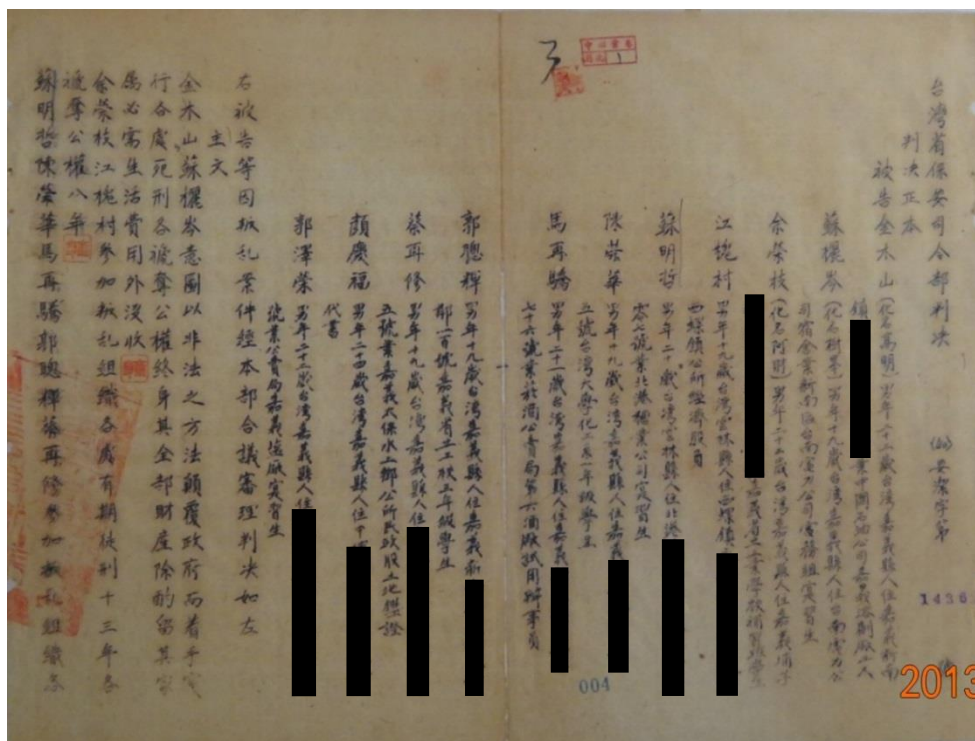 台灣省保安司令部判決
(40)安潔字第
1436
號
判決正本
被告金木山(化名高明)男年二十三歲台灣嘉義縣人住嘉義
鎮
業中國石油公司嘉義溶劑廠工人
蘇欐岑
男年十九歲台灣嘉義縣人住台南
司宿舍業新南區台南電力公司
實習生
余榮枝(化名阿財)男年二十五歲台灣嘉義縣人住嘉義
嘉義省工業學校
江槐村
男年十九歲台灣雲林縣人住西螺鎮
西螺鎮公所經濟股員
蘇明哲
男年二十歲台灣雲林縣人住北港
零七號業北港糖業公司實習生
陳榮華
男年十九歲台灣嘉義縣人住嘉義
五號台灣大學化工系一年級學生
馬再騎
男年二十一歲台灣嘉義縣人住嘉義
七十六號業菸酒公賣局第六酒廠試用辦事員
郭聰輝
男年十九歲台灣嘉義縣人住嘉義
郡一百號嘉義省工工校三年級學生
蔡再修
男年十九歲台灣嘉義縣人住
五號業嘉義太保水上鄉公所民政股土地
證
顏慶福
男年二十四歲台灣嘉義縣人住
代書
郭澤榮
男年二十二歲台灣嘉義縣人住
號業公賣局嘉義
廠實習生
右被告等因叛乱案件經本部合議審理判決如左
主文
金木山蘇欐岑意圖以非法之方法顛覆政府而着手實
行各處死刑各褫奪公權終身其全部財產除酌留其家
屬必需生活費用外沒收
余榮枝江槐村參加叛乱組織各處有期徒刑十三年各
褫奪公權八年
蘇明哲陳榮華馬再騎郭聰輝蔡再修參加叛乱組織各
004
2013